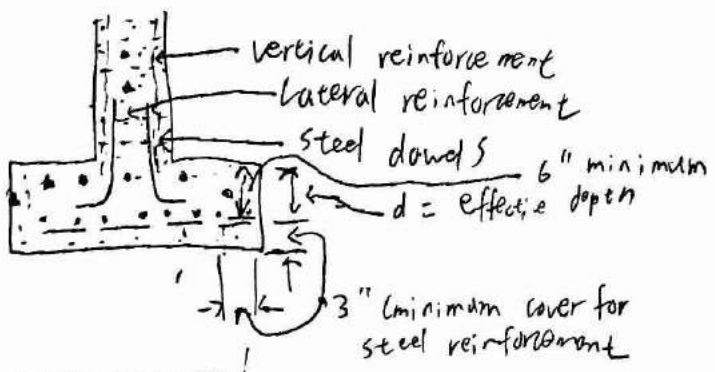 vertical reinforcement
Lateral reinforcement
steel dowels
6" minimum
d = effectie depth
3" (minimum cover for
steel reinforcement